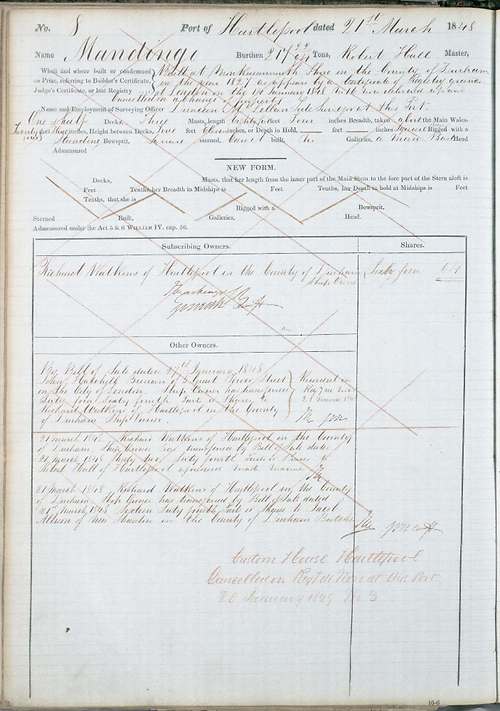 No. 8 Port of Hartlepool dated 21st March 1848
Name Mandingo Burthen 217 Tons, Robert Hall Master,
When and where built or condemned as Prize, referring to Builder's Certificate, Judge's Certificate, or last Registry
Built at Monkwearmouth Shore in the County of Durham
in the year 1837 as appears by a Certificate of Registry granted
at London on the 14 January 1848 No 16 now delivered up and
Cancelled on a change of Property
Name and Employment of Surveying Officer Duncan McLellan Tide Surveyor at this Port
One & half Decks, Three Masts, length Eighty feet Four inches Breadth, taken above the Main Wales
Twenty feet inches, Height between Decks, Four feet Eleven inches, or Depth in Hold, feet inches Square Rigged with a
Standing Bowsprit, Square sterned, Carvel built, No Galleries, a Man Bust Head
Admeasured
NEW FORM.
Decks, Masts, that her length from the inner part of the Main Stem to the fore part of the Stern aloft is
Feet Tenths, her Breadth in Midships is Feet Tenths, her Depth in hold at Midships is Feet
Tenths, that she is Rigged with a Bowsprit,
Sterned Built, Galleries, Head.
Admeasured under the Act 5 & 6 WILLIAM IV. cap. 56.
Subscribing Owners. Shares.
Richard Watkins of Hartlepool in the County of Durham Sixty four 64
Ship Owner
Other Owners.
By Bill of Sale dated 27th January 1848
John Street
in the City of London Ship Owner has transferred
Sixty four Sixty fourth Parts or Shares to
Richard Watkins of Hartlepool in the County
of Durham Ship Owner.
21 March 1848
21 March 1848 Richard Watkins of Hartlepool in the County
of Durham Ship Owner has transferred by Bill of Sale dated
21 March 1848 Sixty fourth Shares to
Robert Hall of Hartlepool aforesaid Master Mariner
21 March 1848 Richard Watkins of Hartlepool in the County
of Durham, Ship Owner has transferred by Bill of Sale dated
21st March 1848 Sixteen Sixty fourth Parts or Shares to
of in the County of Durham
Custom House Hartlepool
Cancelled on Registration at this Port
20 January 1849 No 3